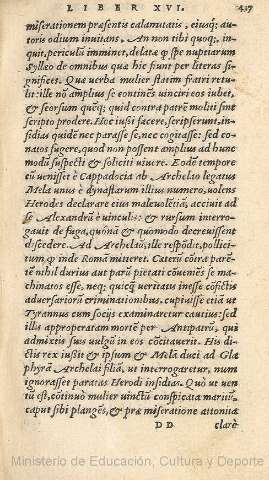 LIBER XVI. 437
miserationem præsentis calamitatis, eiusq; au-
toris odium inuitans. An non tibi quoq;, in-
quit, periculū imminet, delatæ q̃ spe nuptiarum
Sylleo de omnibus quæ hic fiunt per literas si-
gnifices. Quæ uerba mulier statim fratri retu-
lit: ille nō amplius se continēs uinciri eos iubet,
& seorsum quēq; quid contra patrē moliti sint
scripto prodere. Hoc iussi facere, scripserunt, in-
sidias quidē nec parasse se, nec cogitasse: sed co-
natos fugere, quod non possent amplius ad hunc
modū suspecti & soliciti uiuere. Eodē tempore
cū uenisset è Cappadocia ab Archelao legatus
Mela unus è dynastarum illius numero, uolens
Herodes declarare eius maleuolētiā, acciuit ad
se Alexandrū è uinculis: & rursum interro-
gauit de fuga, quónā & quomodo decreuissent
discedere. Ad Archelaū, ille respōdit, pollici-
tum q̃ inde Romā mitteret. Caterū cōtra parē-
tē nihil durius aut parū pietati cōueniēs se ma-
chinatos esse. neq; quicq̃ ueritatis inesse cōfictis
aduersariorū criminationibus. cupiuisse etiā ut
Tyrannus cum socijs examinaretur cautius: sed
illis approperatam mortē per Antipatrū, qui
admixtis suis uulgū in eos cōcitauerit. His di-
ctis rex iußit & ipsum & Melā duci ad Gla
phyrā Archelai filiā, ut interrogaretur, num
ignorasset paratas Herodi insidias. Quò ut uen
tū est, cōtinuò mulier uinctū conspicata maritū,
caput sibi plangēs, & præ miseratione attonita
DD clarè
Ministerio de Educación, Cultura y Deporte